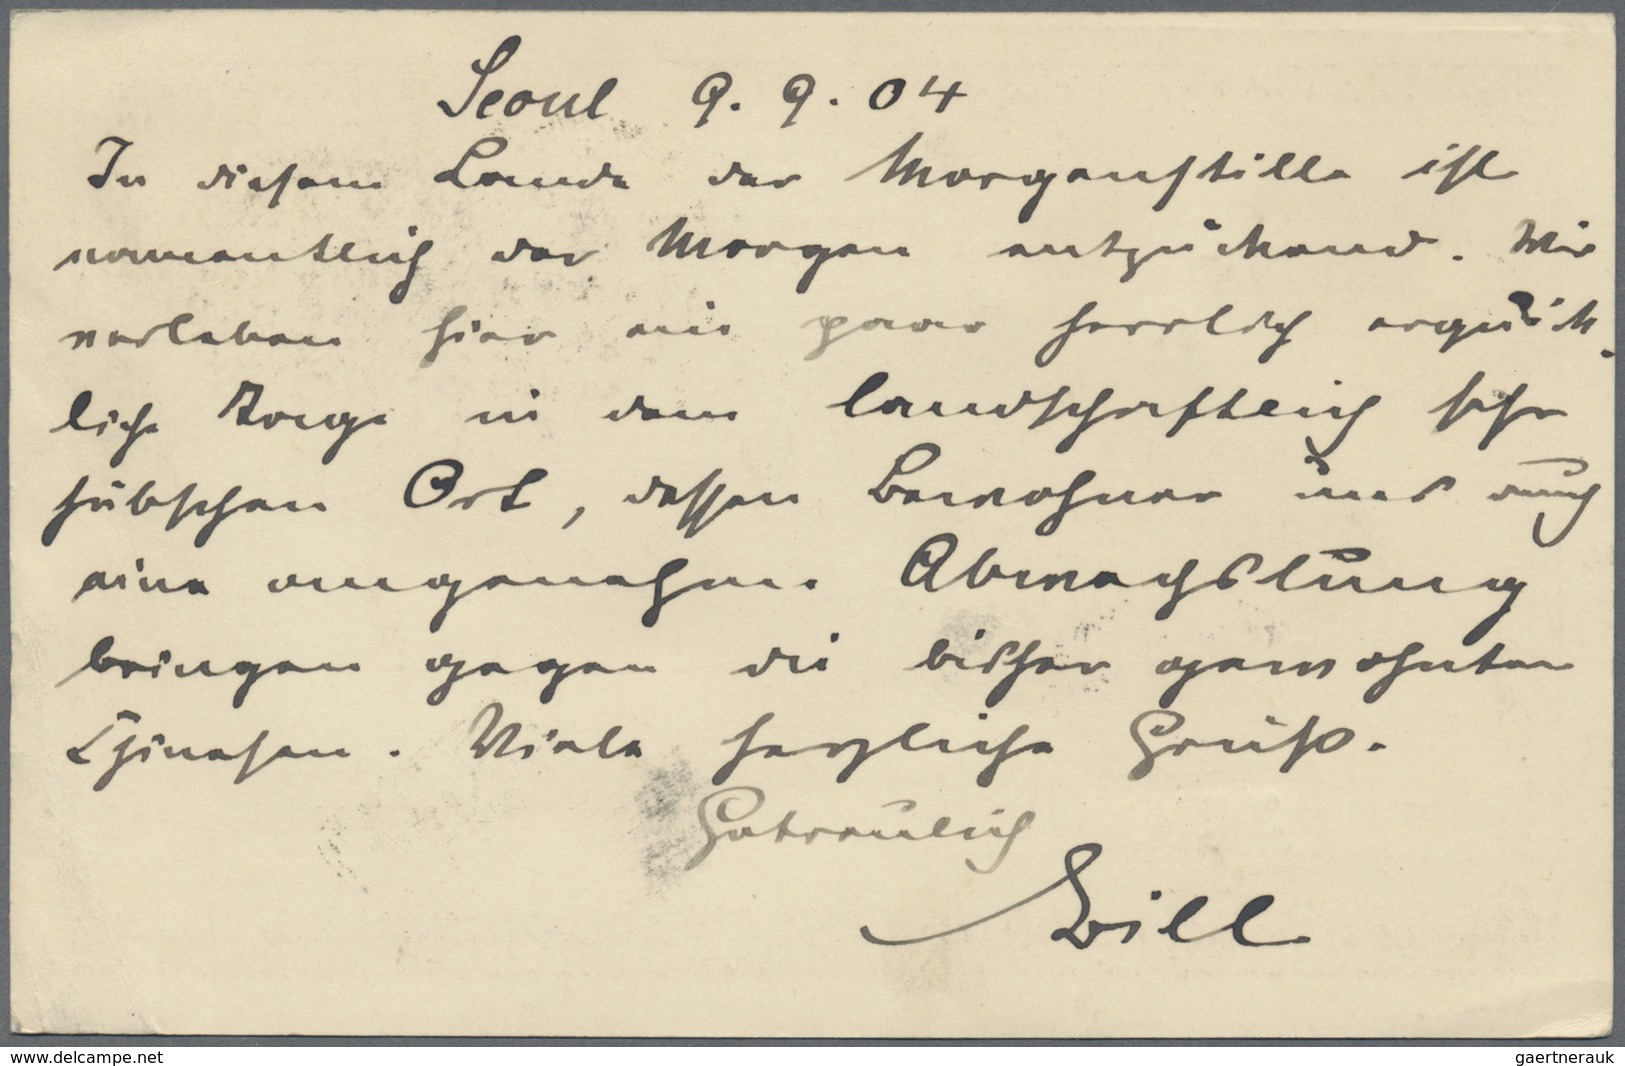 Seoul 9. 9. 04
In diesem Lande der Morgenstille ist
namentlich der Morgen entzückend. Wir
verleben hier ein paar herrlich erquick-
liche Tage in dem landschaftlich sehr
hübschen Ort, dessen Bewohner uns auch
eine angenehme Abwechslung
bringen gegen die bisher gewohnten
Chinesen. Viele herzliche Grüße.
Getreulich
Will
www.delcampe.net
gaertnerauk